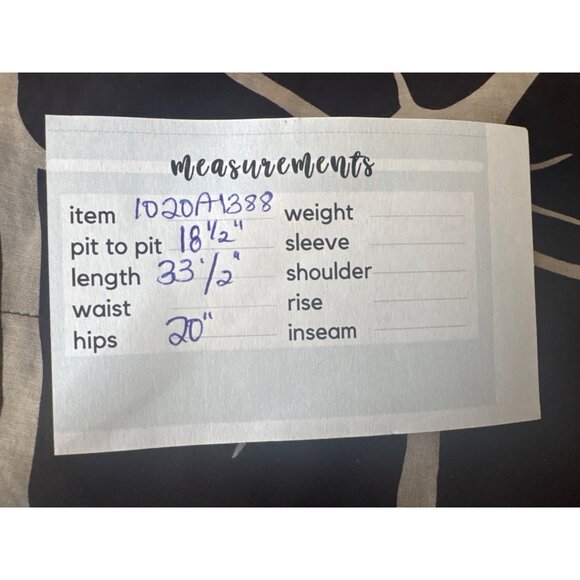 measurements
item 1020A1388
pit to pit 18 1/2"
length 33 1/2"
waist
hips 20"
weight
sleeve
shoulder
rise
inseam